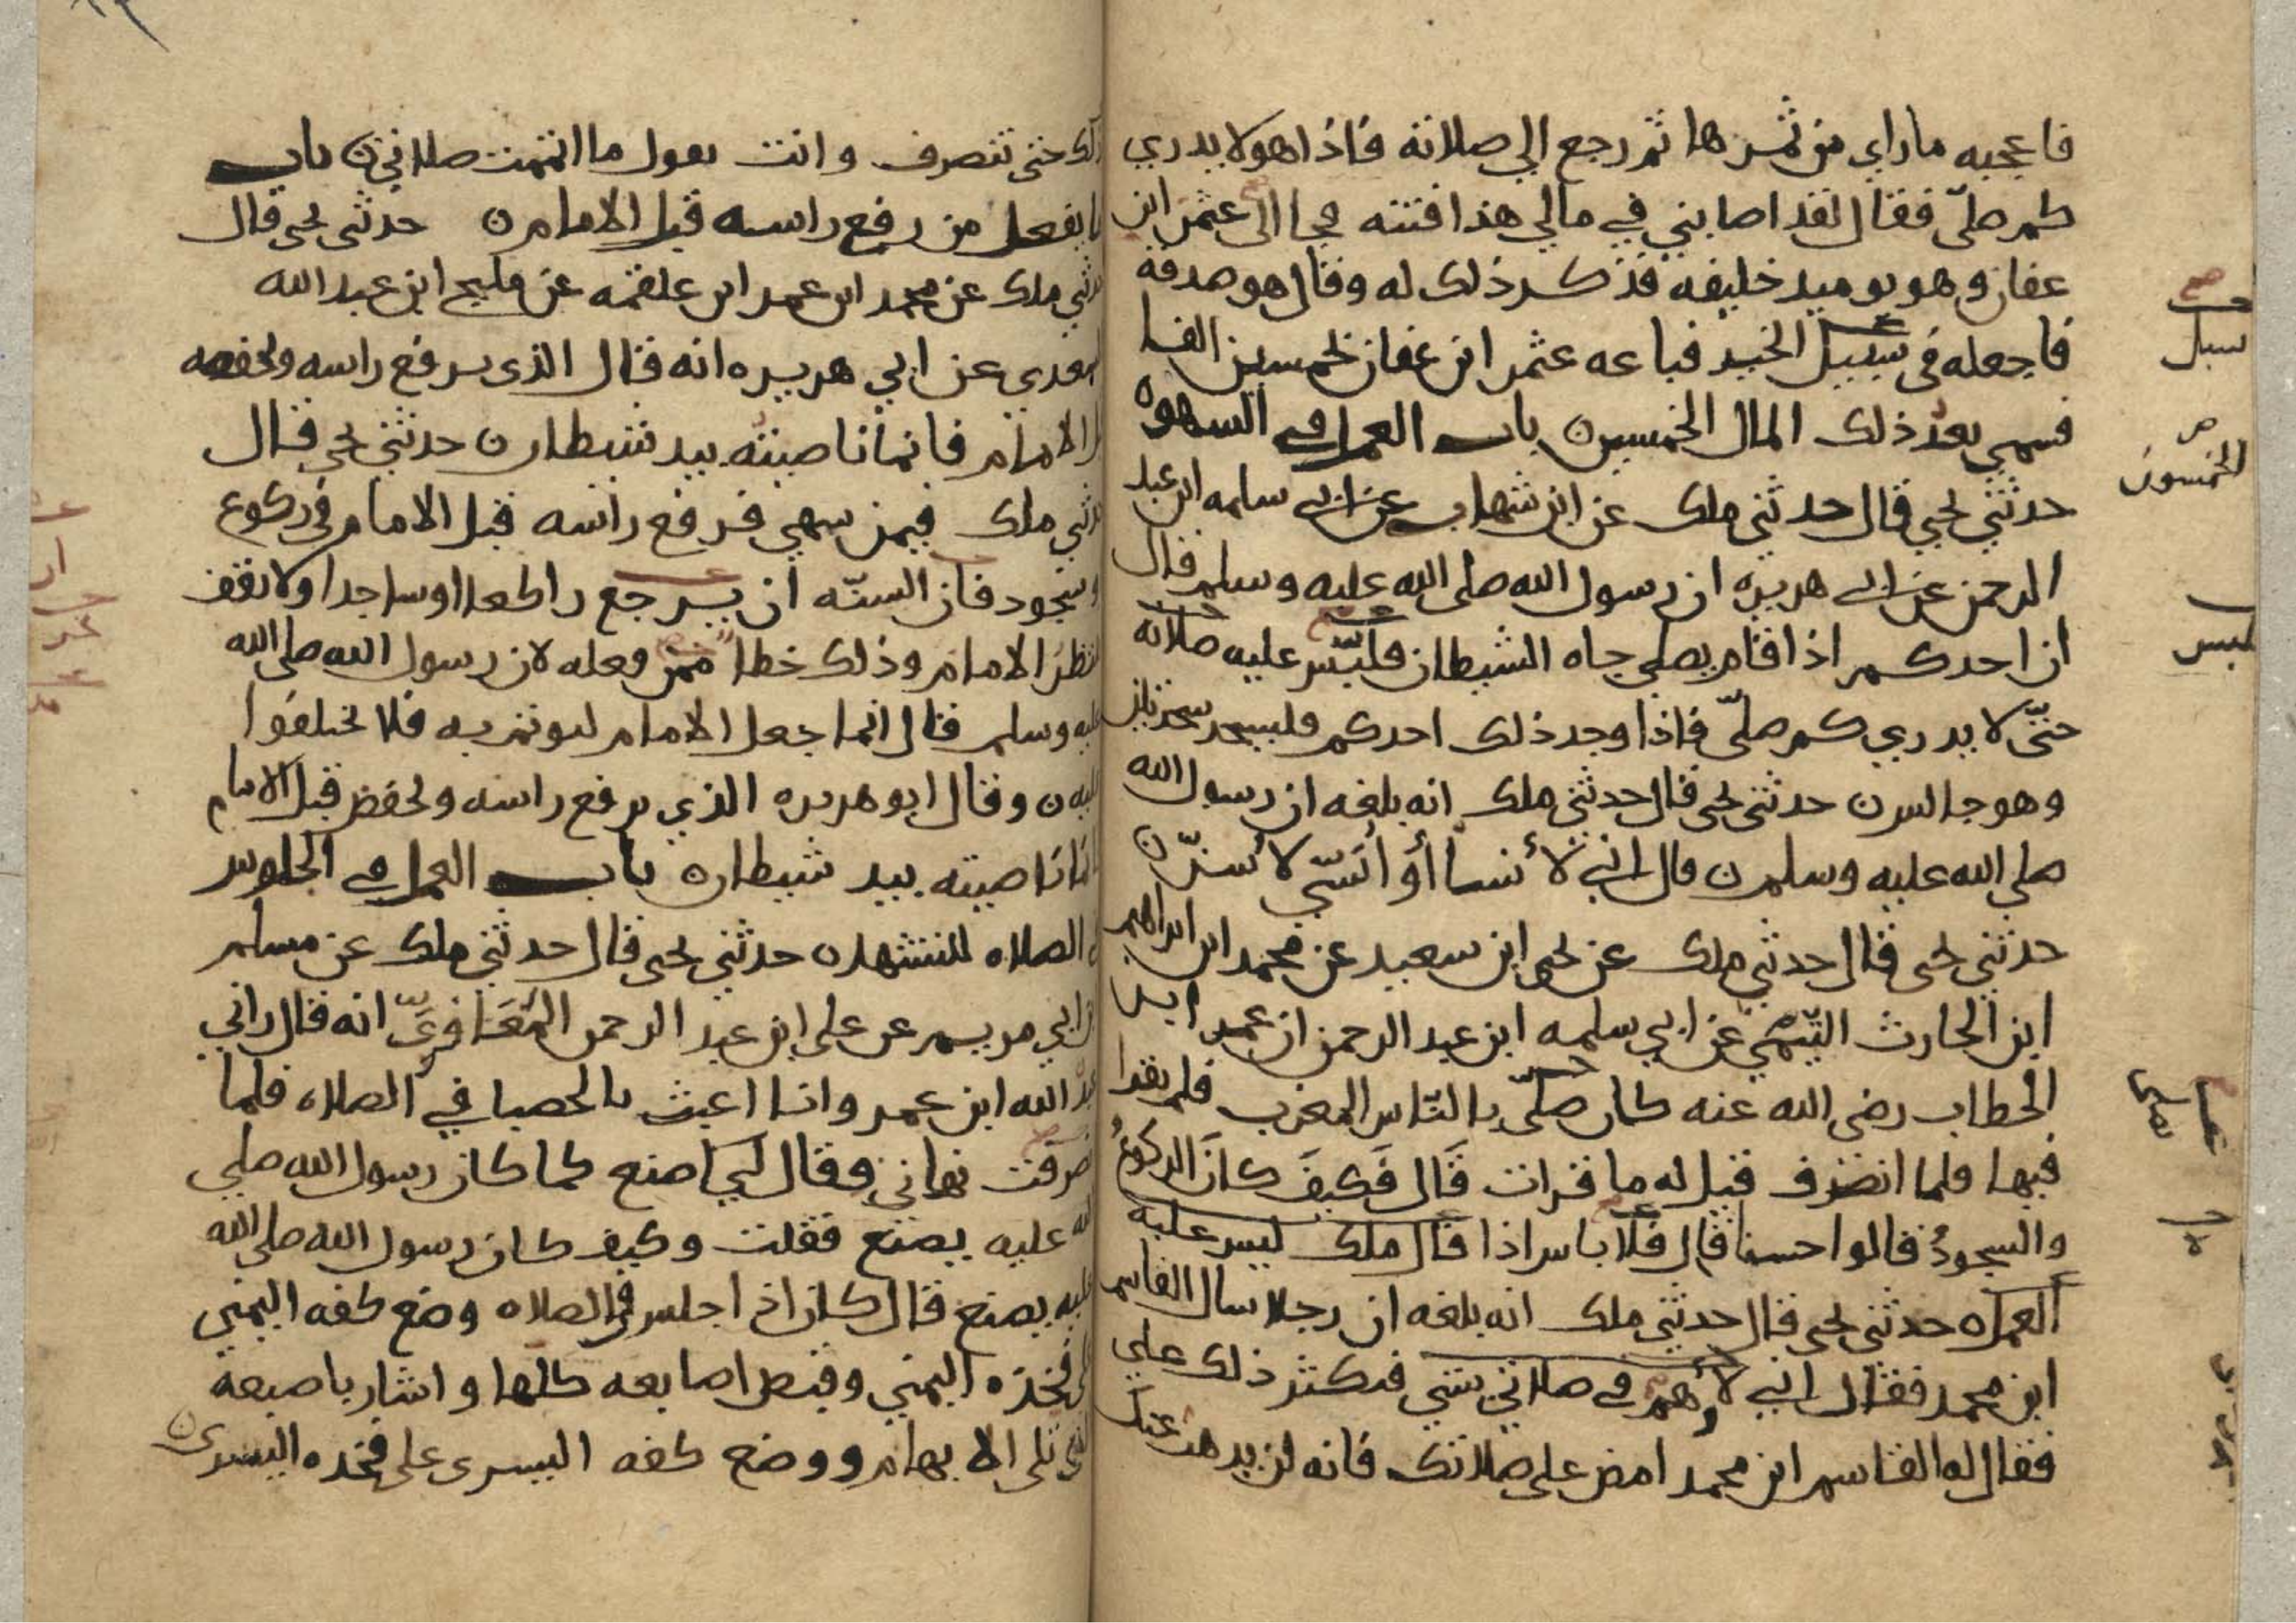 فاعجبه ماراي من ثمرها ثم رجع الي صلاته فاذا هو لا يدري
كم صلّى فقال لقد اصابني في مالي هذا فتنه فجا الى عثمن ابن
عفان وهو يوميد خليفه فذكر ذلك له وقال هو صدقه
فاجعله في سبيل الخير فباعه عثمن ابن عفان بخمسين الفا
فسمي بعد ذلك المال الخمسين باب العمل في السهو
حدثني يحيى قال حدثني ملك عن ابن شهاب عن ابي سلمه ابن عبد
الرحمن عن ابي هريره ان رسول الله صلى الله عليه وسلم قال
ان احدكم اذا قام يصلي جاه الشيطان فلبّس عليه صلاته
حتّى لا يدري كم صلّى فاذا وجد ذلك احدكم فليسجد سجدتين
وهو جالس حدثني يحيى قال حدثني ملك انه بلغه ان رسول الله
صلى الله عليه وسلم قال اني لأنسا أو أنسّي لأسنّ
حدثني يحيى قال حدثني ملك عن يحيى ابن سعيد عن محمد ابن ابراهيم
ابن الحارث التّيمي عن ابي سلمه ابن عبد الرحمن ان عمر ابن
الخطاب رضي الله عنه كان صلّى بالنّاس المغرب فلم يقرا
فيها فلما انصرف قيل له ما قرات قَال فَكيفَ كانَ الركوعُ
والسجودُ قالوا حسنا قال فلا باس اذا قال ملك ليس عليه
العمل حدثني يحيى قال حدثني ملك انه بلغه ان رجلا سال القاسم
ابن محمد فقال اني لأهم في صلاتي شي فيكثر ذلك علي
فقال له القاسم ابن محمد امض على صلاتك فانه لن يدهب عنك
سبيل
الخمسون
فلبس
يصلي
ذلك حتى تنصرف وانت تقول ما اتممت صلاتي باب
ما يفعل من رفع راسه قبل الامام حدثني يحيى قال
حدثني ملك عن محمد ابن عمر ابن علقمه عن مليح ابن عبد الله
السعدي عن ابي هريره انه قال الذي يرفع راسه ويخفضه
قبل الامام فانما ناصيته بيد شيطان حدثني يحيى قال
حدثني ملك فيمن سهي فرفع راسه قبل الامام في ركوع
او سجود فان السنّه ان يرجع راكعا او ساجدا ولا يقف
ينتظر الامام وذلك خطا ممن فعله لان رسول الله صلى الله
عليه وسلم قال انما جعل الامام ليوتم به فلا تختلفوا
عليه وقال ابو هريره الذي يرفع راسه ويخفض قبل الامام
انما ناصيته بيد شيطان باب العمل في الجلوس
في الصلاه للتشهد حدثني يحيى قال حدثني ملك عن مسلم
ابن ابي مريم عن علي ابن عبد الرحمن المُعَافريّ انه قال راني
عبد الله ابن عمر وانا اعبث بالحصبا في الصلاه فلما
انصرفت نهاني فقال لي اصنع كما كان رسول الله صلي
الله عليه يصنع فقلت وكيف كان رسول الله صلى الله
عليه يصنع قال كان اذا جلس في الصلاه وضع كفه اليمني
على فخذه اليمني وقبض اصابعه كلها واشار باصبعه
التي تلي الابهام ووضع كفه اليسرى على فخذه اليسرى